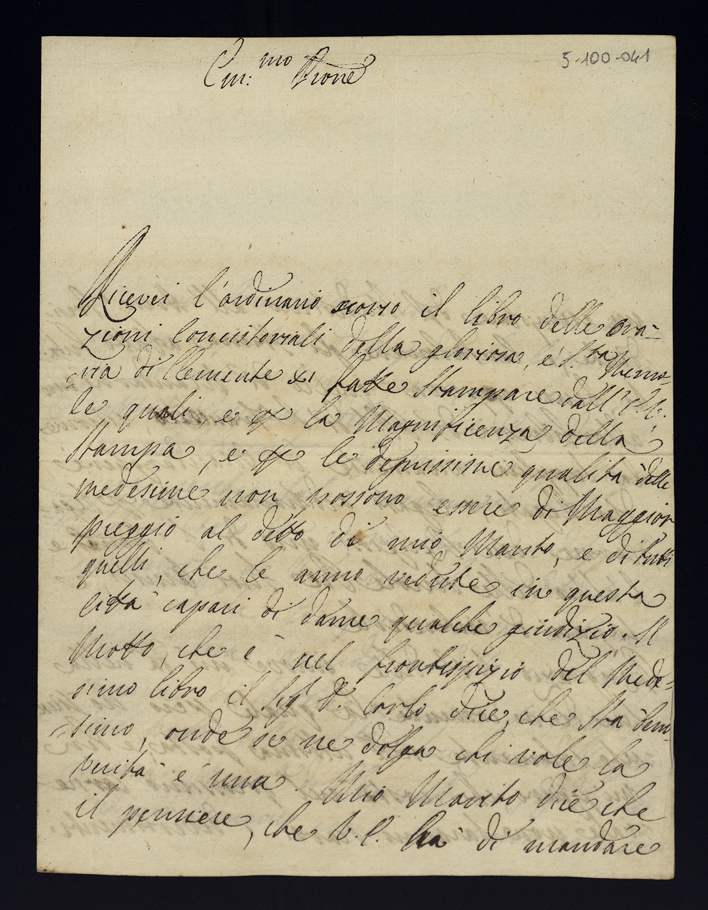 5-100-041
Em:mo Prone
Ricevei l'ordinario scorso il libro delle ora=
zioni Concistoriali della gloriosa, e S.ta Memo=
ria di Clemente XI fatte stampare dall'
le quali e la Magnificenza della
stampa, e le degnissime qualità delle
medesime non possono essere di Maggior
preggio al detto di mio Marito, e di tutti
quelli, che le anno vedute in questa
città capaci di darne qualche giudizio. Il
Motto, che è nel frontispizio del Mede=
simo libro il Sig.r D. Carlo dice, che sta
=simo, onde se ne dolga chi vole la
verità è una. Mio Marito dice che
il pensiere, che V. E. ha di mandare